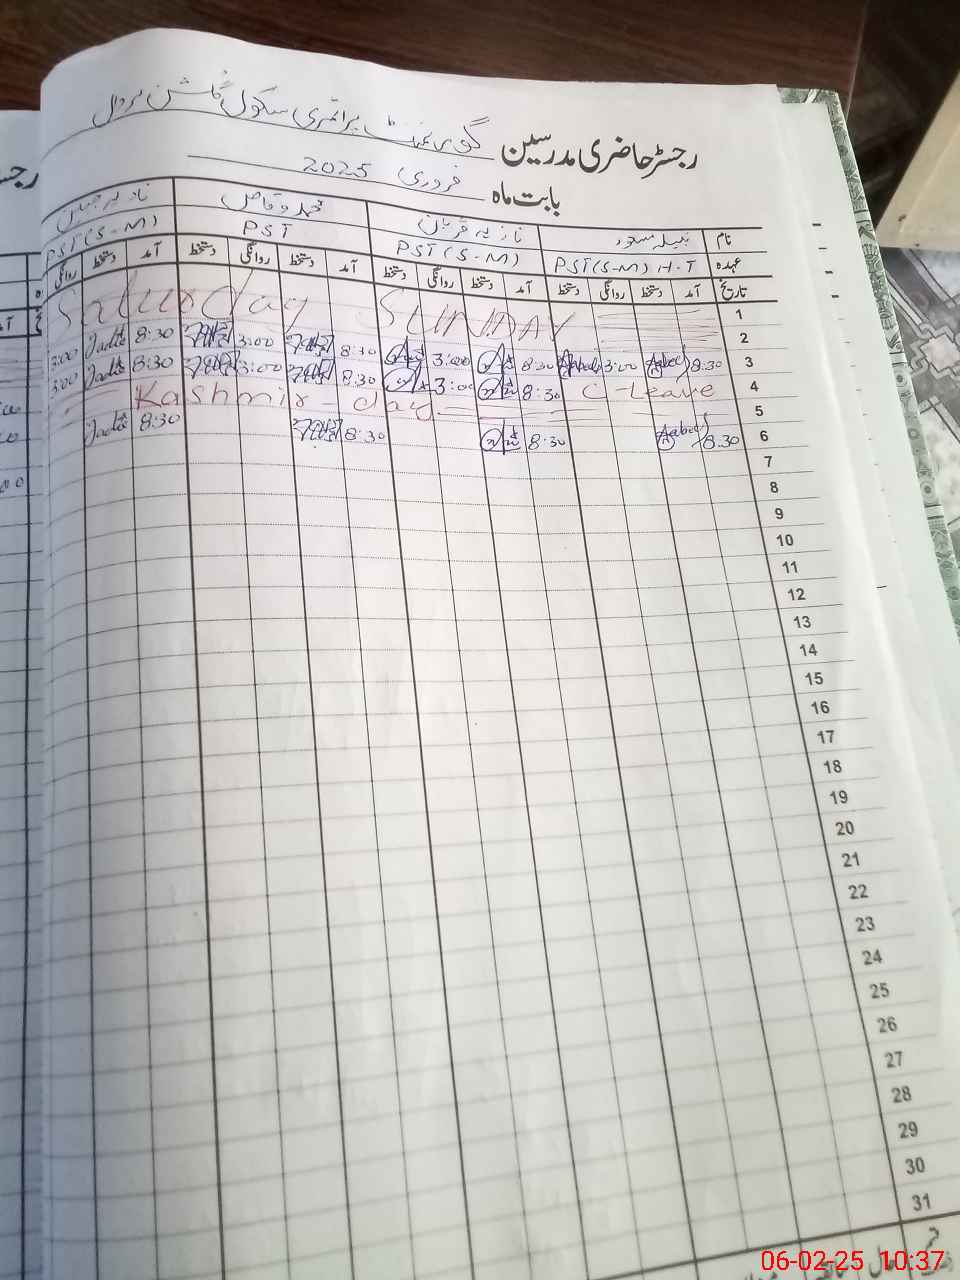 رجسٹر حاضری مدرسین گورنمنٹ پرائمری سکول گلشن
بابت ماہ فروری 2025
نام نبیلہ مسعود نازیہ قربان محمد وقاص نادیہ
عہدہ PST (S-M) H-T PST (S-M) PST PST (S-M)
تاریخ آمد دستخط روانگی دستخط آمد دستخط روانگی دستخط آمد دستخط روانگی دستخط آمد دستخط روانگی
1 Saturday
2 SUNDAY
3 8:30 3:00 8:30 3:00 8:30 3:00 8:30 3:00
4 C-Leave 8:30 3:00 8:30 3:00 8:30 3:00
5 Kashmir-day
6 8:30 8:30 8:30 8:30
7
8
9
10
11
12
13
14
15
16
17
18
19
20
21
22
23
24
25
26
27
28
29
30
31
06-02-25 10:37